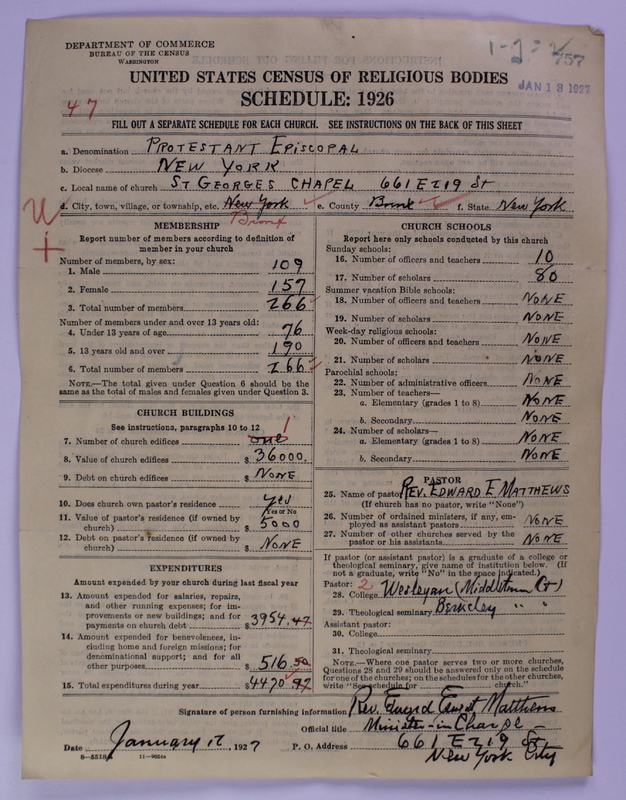 DEPARTMENT OF COMMERCE
BUREAU OF THE CENSUS
WASHINGTON
757
JAN 13 1927
UNITED STATES CENSUS OF RELIGIOUS BODIES
SCHEDULE: 1926
47
FILL OUT A SEPARATE SCHEDULE FOR EACH CHURCH. SEE INSTRUCTIONS ON THE BACK OF THIS SHEET
a. Denomination PROTESTANT EPISCOPAL
b. Diocese NEW YORK
c. Local name of church ST GEORGES CHAPEL 661 E 219 St
d. City, town, village, or township, etc. New York e. County Bronx f. State New York
Bronx
W
+
MEMBERSHIP
Report number of members according to definition of
member in your church
Number of members, by sex:
1. Male 109
2. Female 157
3. Total number of members 266
Number of members under and over 13 years old:
4. Under 13 years of age 76
5. 13 years old and over 190
6. Total number of members 266
NOTE.—The total given under Question 6 should be
same as the total of males and females given under Question 3.
CHURCH BUILDINGS
See instructions, paragraphs 10 to 12
7. Number of church edifices one 1
8. Value of church edifices $ 36000.
9. Debt on church edifices $ NONE
10. Does church own pastor's residence yes
Yes or No
11. Value of pastor's residence (if owned by
church) $ 5000
12. Debt on pastor's residence (if owned by
church) $ NONE
EXPENDITURES
Amount expended by your church during last fiscal year
13. Amount expended for salaries, repairs,
and other running expenses; for im-
provements or new buildings; and for
payments on church debt $ 3954.47
14. Amount expended for benevolences, in-
cluding home and foreign missions; for
denominational support; and for all
other purposes $ 516.50
15. Total expenditures during year $ 4470.97
CHURCH SCHOOLS
Report here only schools conducted by this church
Sunday schools:
16. Number of officers and teachers 10
17. Number of scholars 80
Summer vacation Bible schools:
18. Number of officers and teachers NONE
19. Number of scholars NONE
Week-day religious schools:
20. Number of officers and teachers NONE
21. Number of scholars NONE
Parochial schools:
22. Number of administrative officers NONE
23. Number of teachers—
a. Elementary (grades 1 to 8) NONE
b. Secondary NONE
24. Number of scholars—
a. Elementary (grades 1 to 8) NONE
b. Secondary NONE
PASTOR
25. Name of pastor REV. EDWARD E MATTHEWS
(If church has no pastor, write "None")
26. Number of ordained ministers, if any, em-
ployed as assistant pastors NONE
27. Number of other churches served by the
pastor or his assistants NONE
If pastor (or assistant pastor) is a graduate of a college or
theological seminary, give name of institution below. (If
not a graduate, write "No" in the space indicated.)
Pastor: 2
28. College Wesleyan (Middletown Ct)
29. Theological seminary Berkeley " "
Assistant pastor:
30. College
31. Theological seminary
NOTE.—Where one pastor serves two or more churches,
Questions 28 and 29 should be answered only on the schedule
for one of the churches; on the schedules for the other churches,
write "See schedule for church."
Signature of person furnishing information Rev. Edward Ernest Matthews
Official title Minister-in Charge
Date January 12, 1927 P. O. Address 661 E 219 St.
8—5518 11—9664a New York City